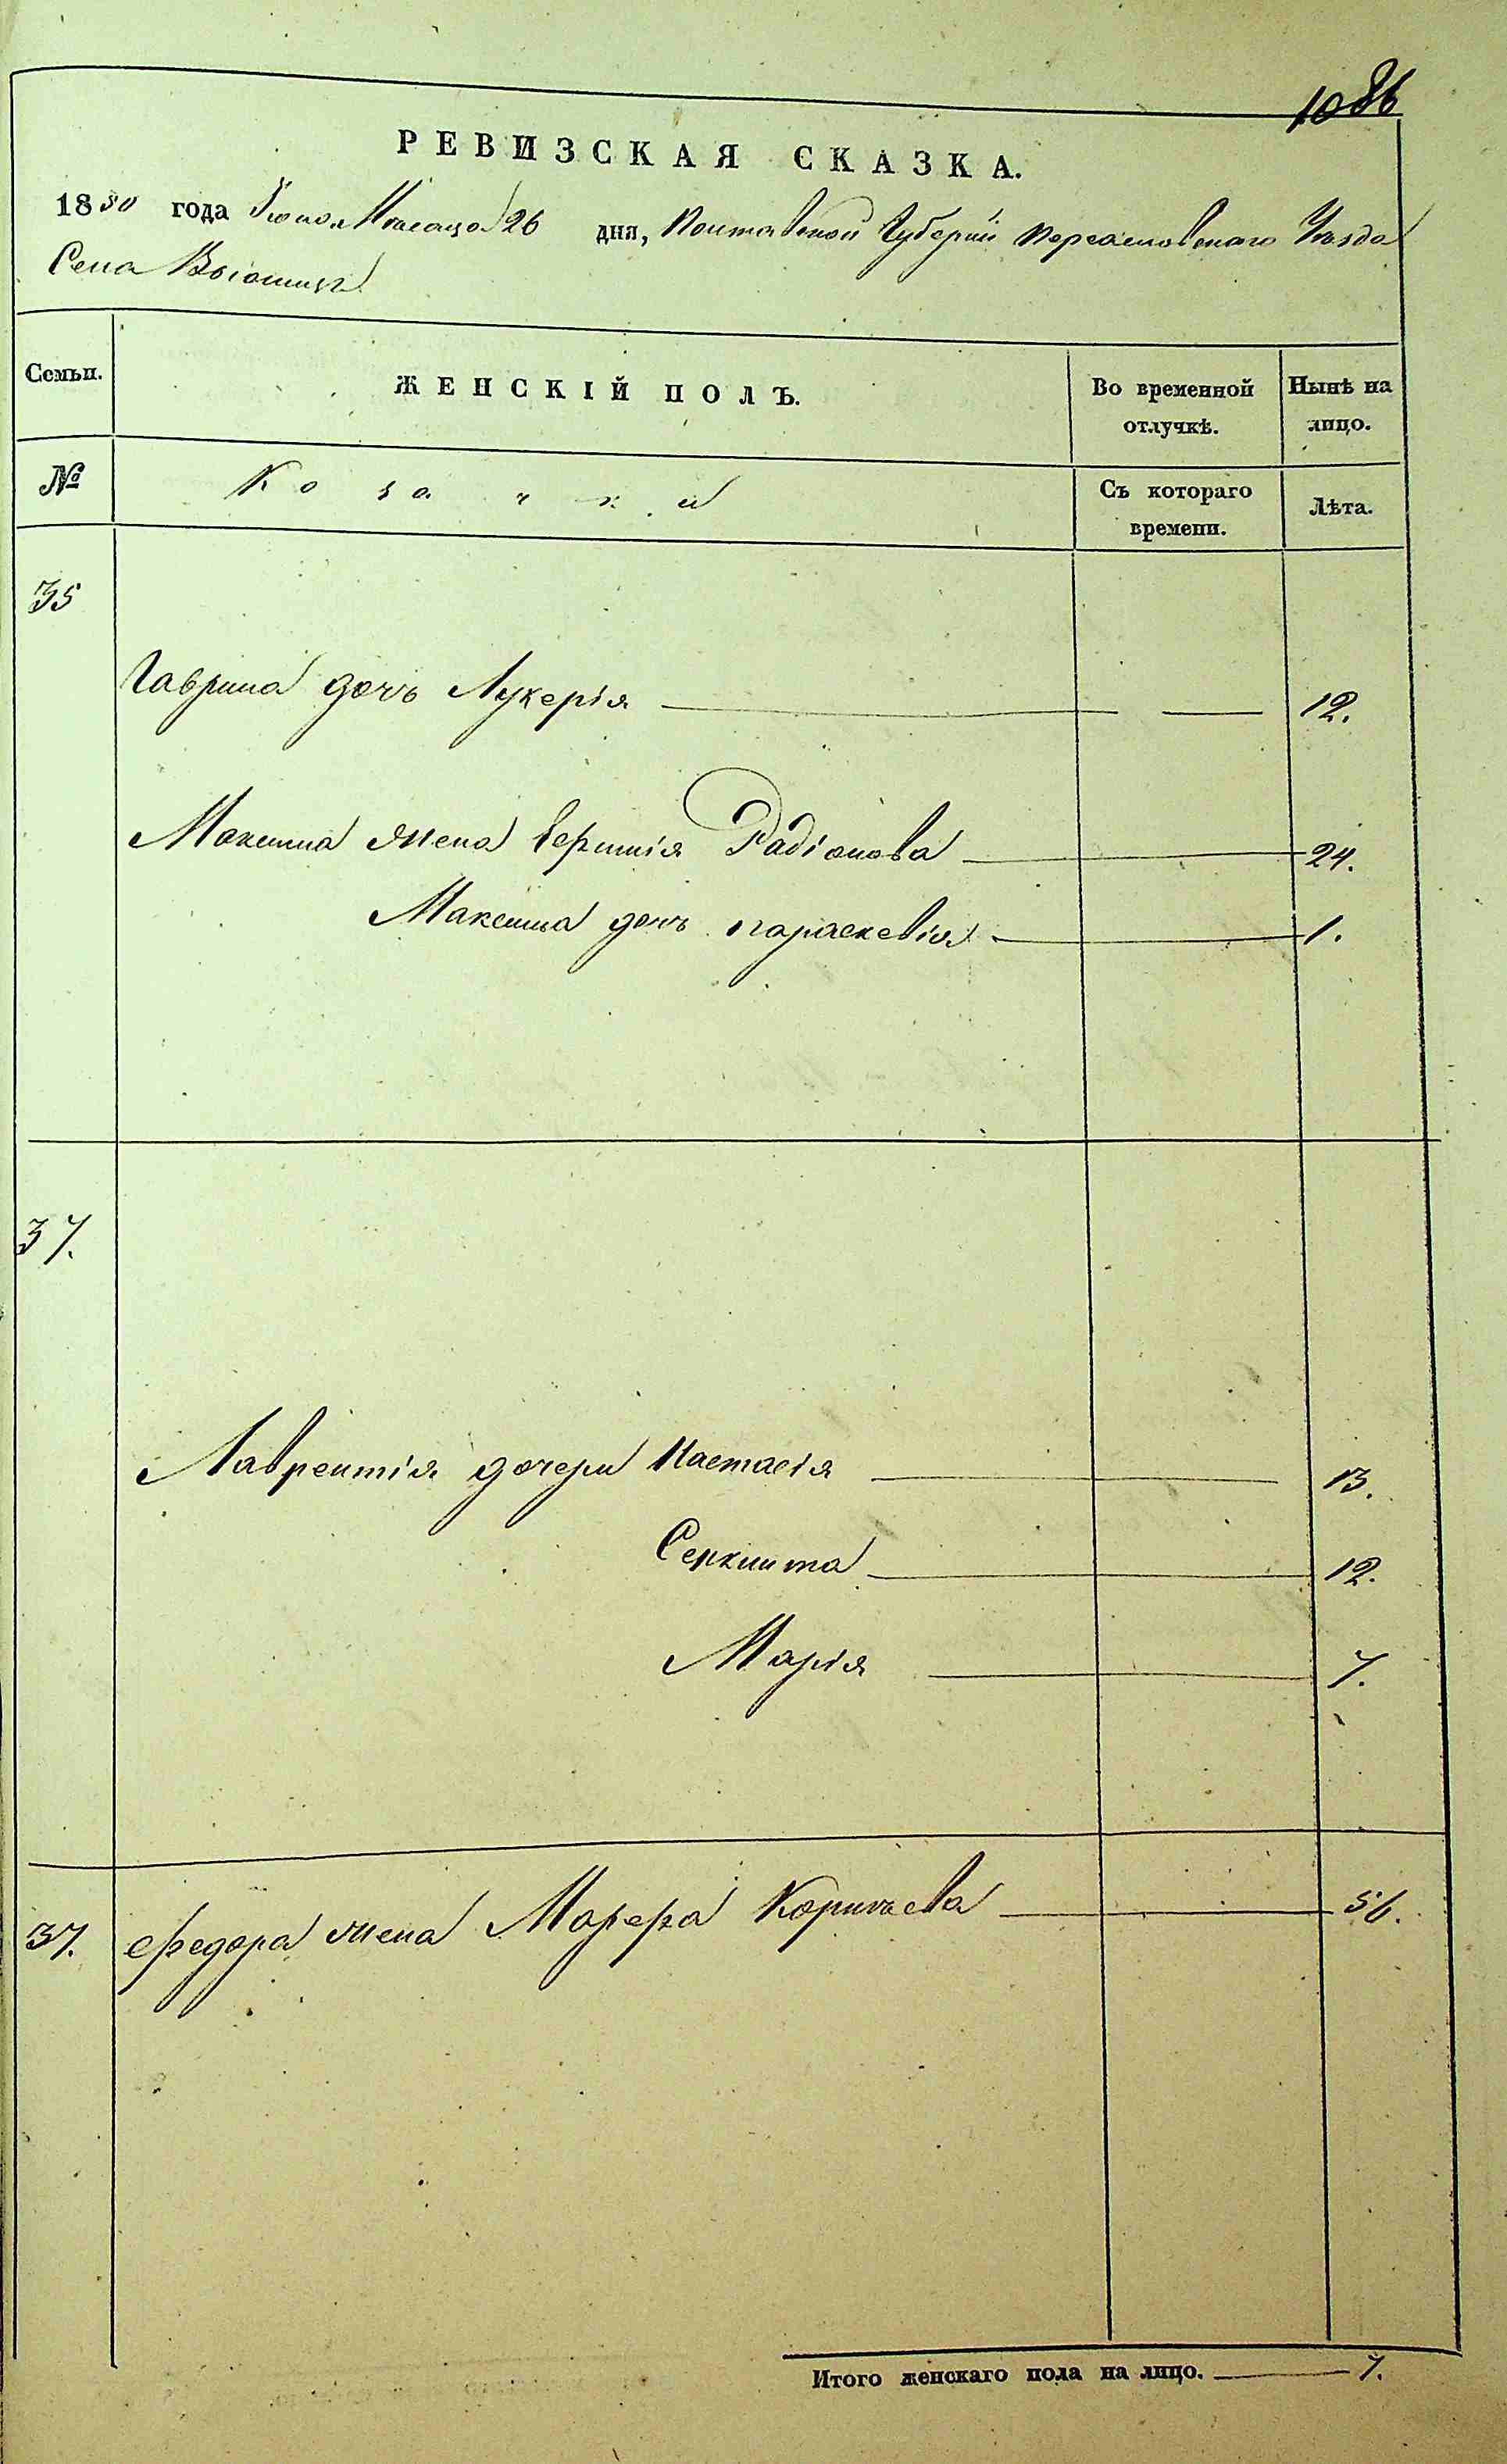 1086
РЕВИЗСКАЯ СКАЗКА.
1850 года Июня Месяца 26 дня, Полтавской Губернии Переяславского Уезда
Села
Семьи.
ЖЕНСКІЙ ПОЛЪ.
Во временной отлучкѣ.
Нынѣ на лицо.
№
Козачки
Съ котораго времени.
Лѣта.
35
Гаврила дочь Лукерія 12.
Максима жена Радіонова 24.
Максима дочь параскевія 1.
37.
Лаврентія дочери Настасія 13.
12.
Марія 7.
37. Федора жена 56.
Итого женскаго пола на лицо. 7.